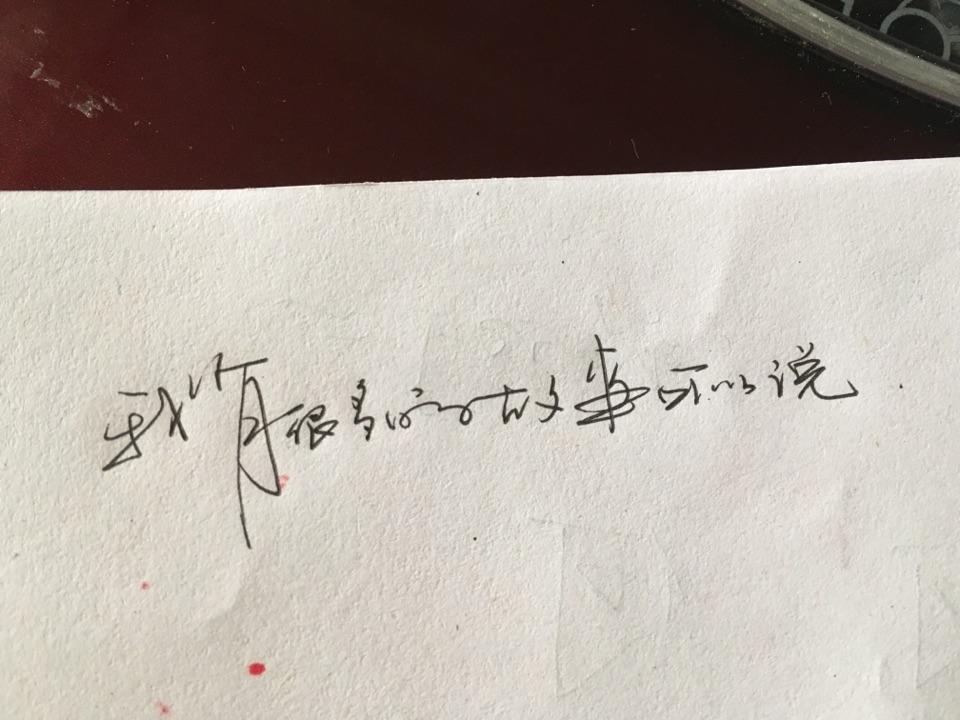 我有很多的故事可以说.